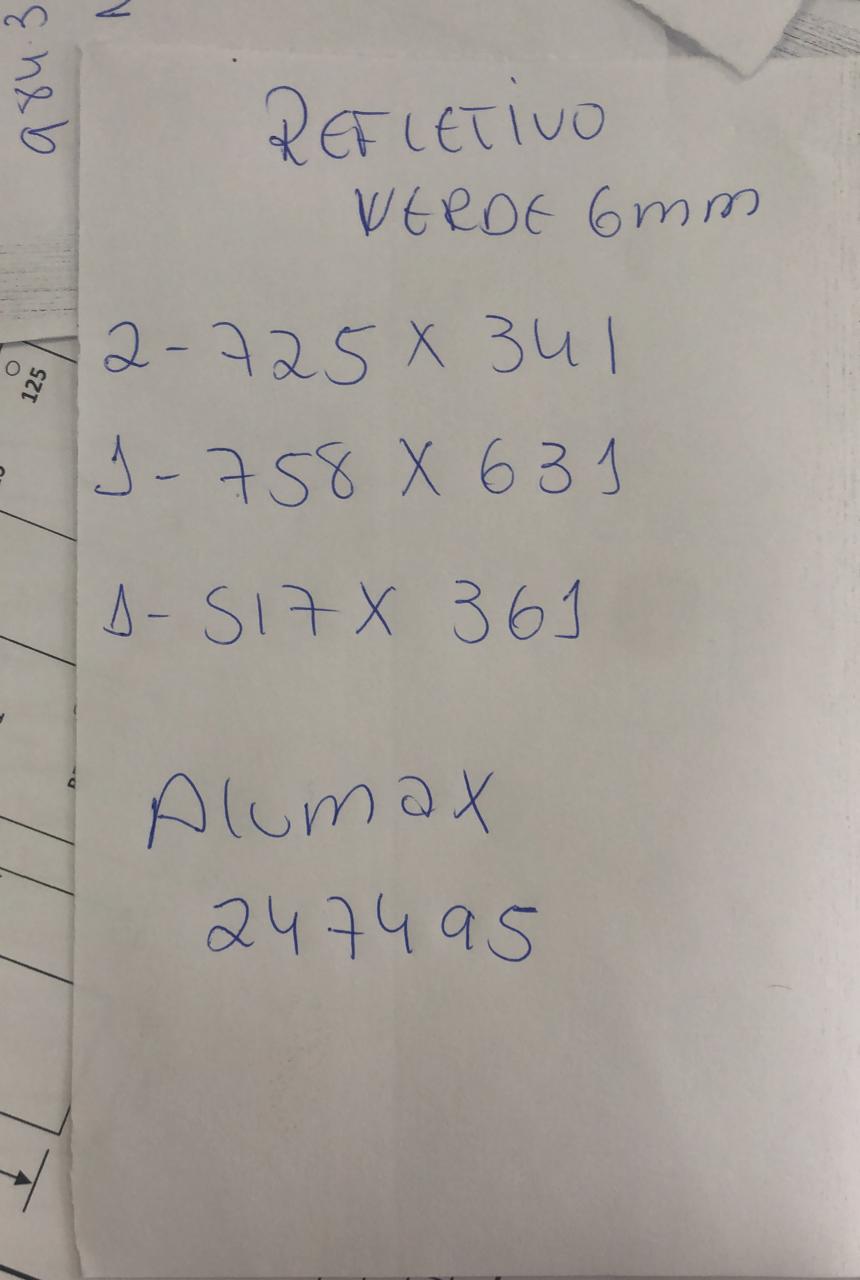 984.3
REFLETIVO
VERDE 6mm
2-725 X 341
1-758 X 631
1-517 X 361
Alumax
247495
125